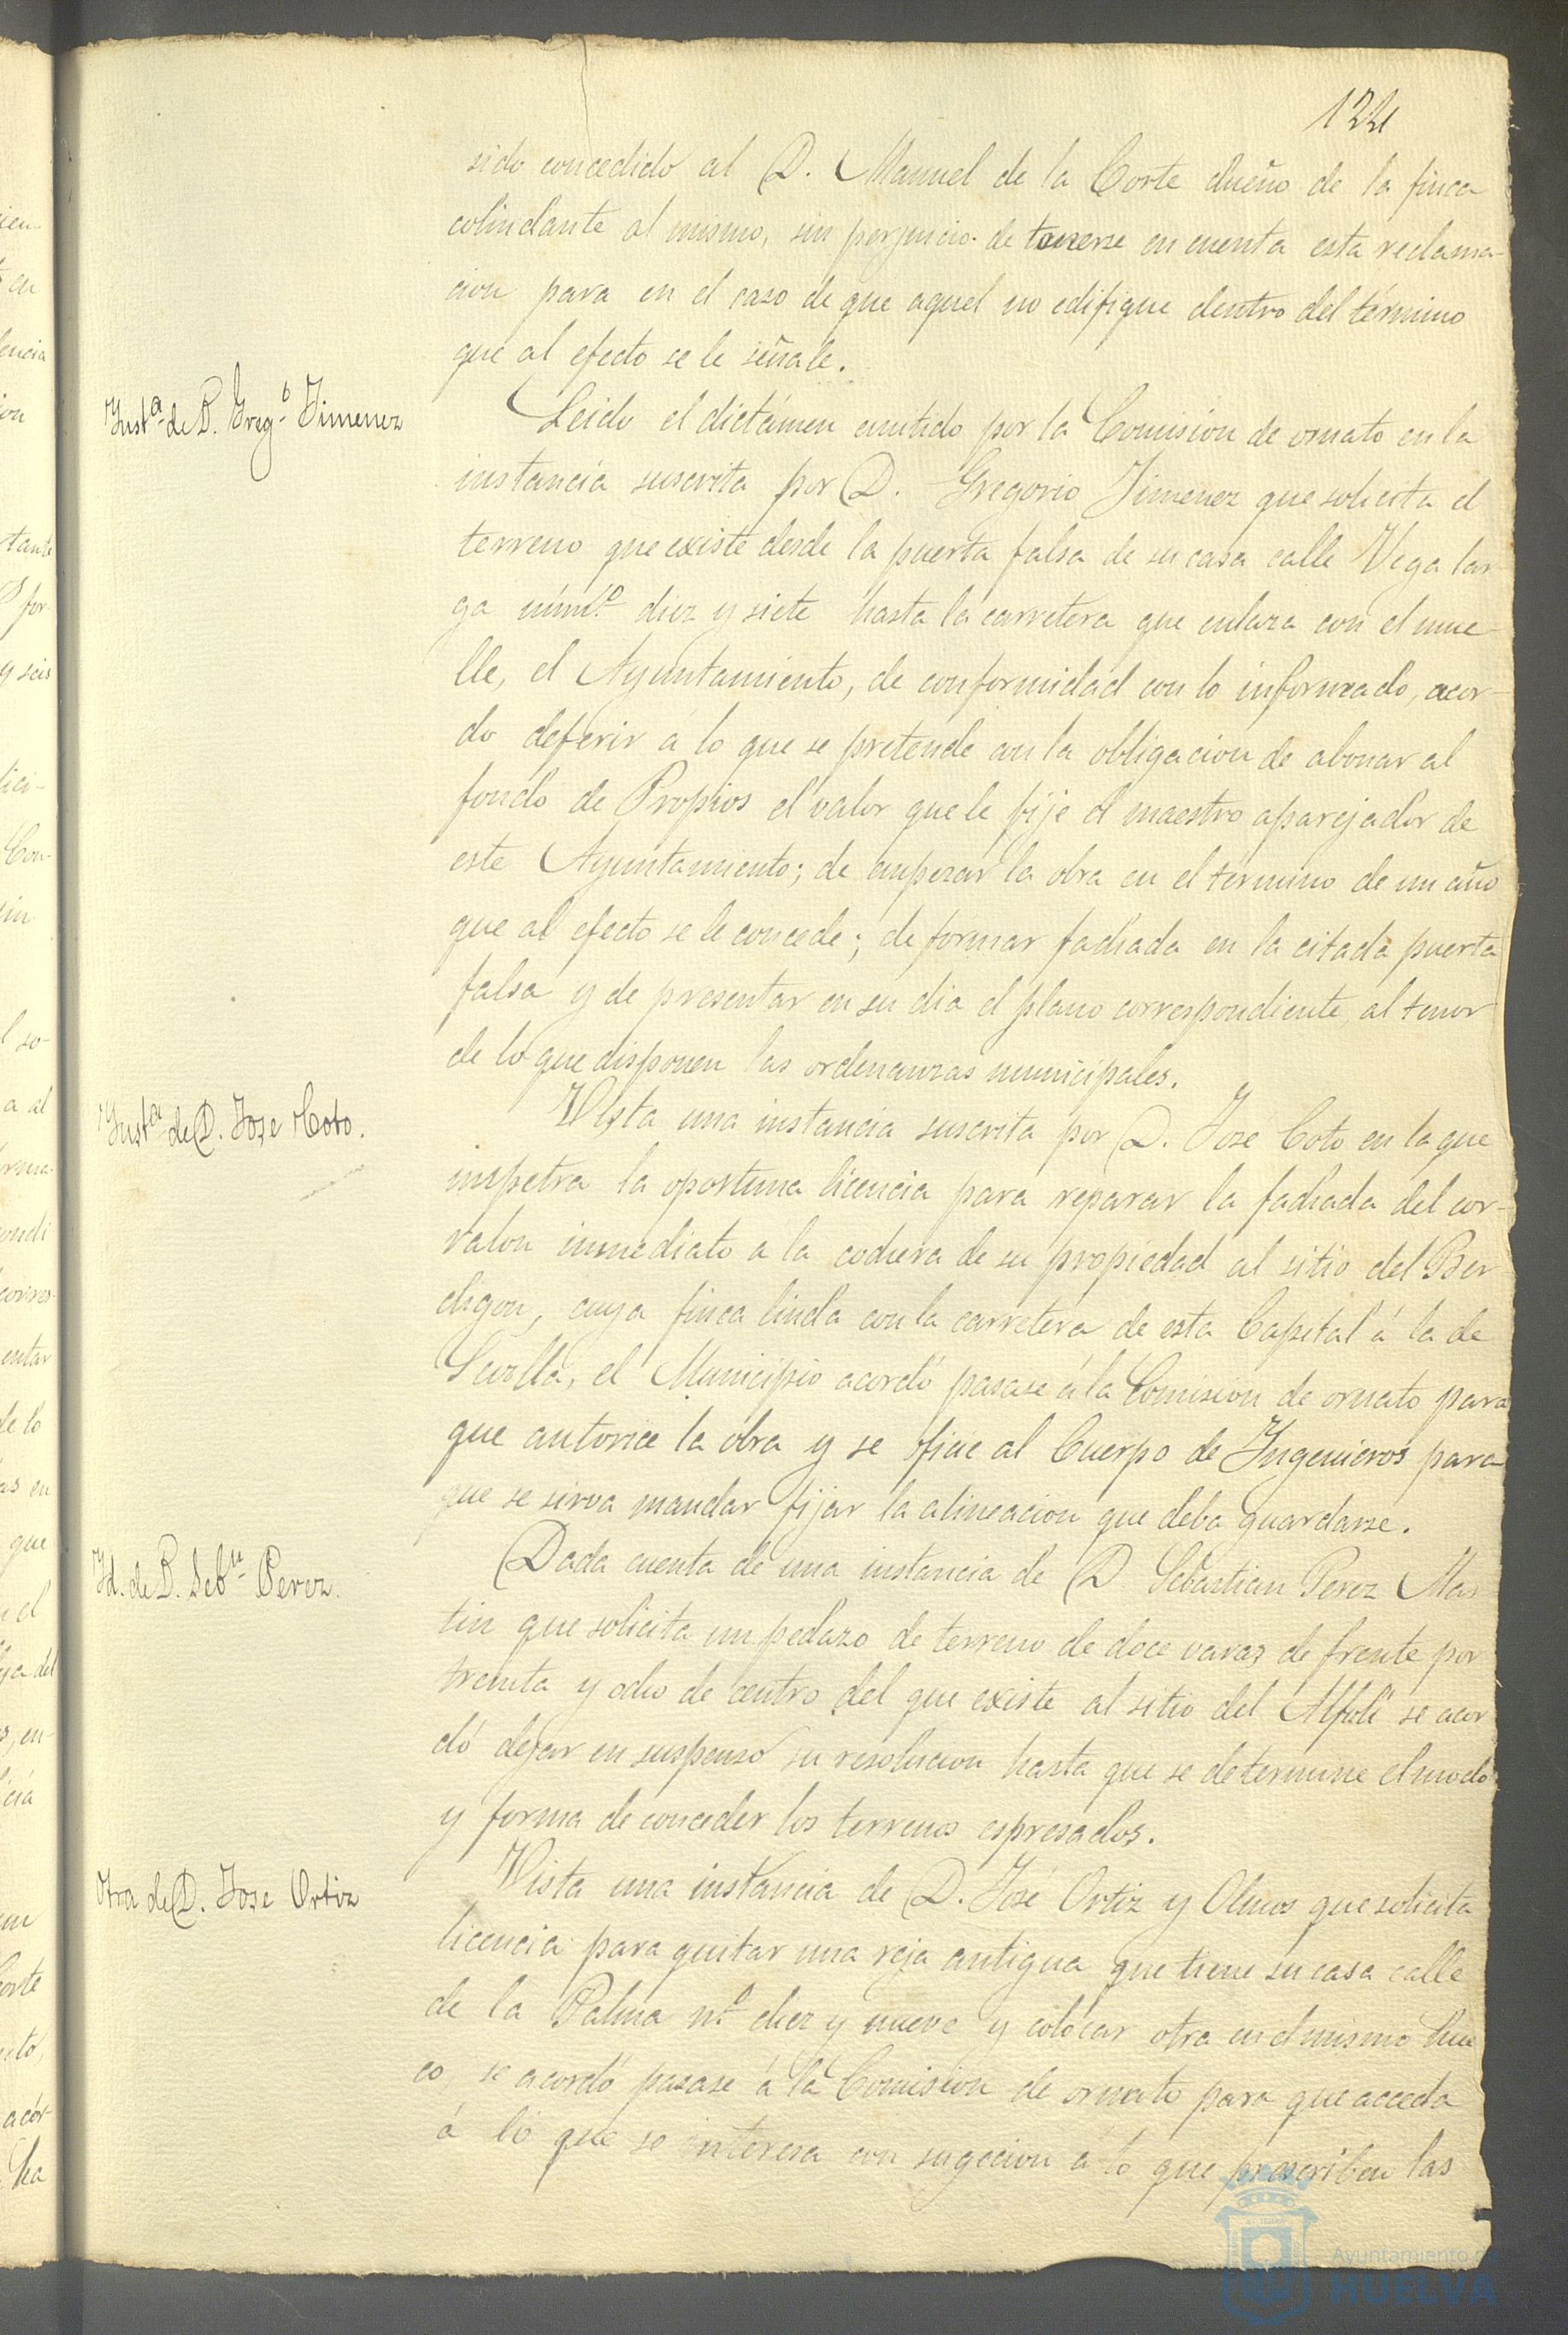 124
sido concedido al D. Manuel de la Corte dueño de la finca
colindante al mismo, sin perjuicio de tenerse en cuenta esta reclama-
cion para en el caso de que aquel no edifique dentro del término
que al efecto se le señale.
Inst.ª de D. Greg.º Jimenez
Leido el dictámen emitido por la Comision de ornato en la
instancia suscrita por D. Gregorio Jimenez que solicita el
terreno que existe desde la puerta falsa de su casa calle Vega lar-
ga núm.º diez y siete hasta la carretera que enlaza con el mue-
lle, el Ayuntamiento, de conformidad con lo informado, acor-
do deferir á lo que se pretende con la obligacion de abonar al
fondo de Propios el valor que le fije el maestro aparejador de
este Ayuntamiento; de empezar la obra en el término de un año
que al efecto se le concede; de formar fachada en la citada puerta
falsa y de presentar en su dia el plano correspondiente, al tenor
de lo que disponen las ordenanzas municipales.
Inst.ª de D. Jose Coto.
Vista una instancia suscrita por D. Jose Coto en la que
impetra la oportuna licencia para reparar la fachada del cor-
ralon inmediato a la cochera de su propiedad al sitio del Ber-
digon, cuya finca linda con la carretera de esta Capital á la de
Sevilla, el Municipio acordó pasase á la Comision de ornato para
que autorice la obra y se oficie al Cuerpo de Ingenieros para
que se sirva mandar fijar la alineacion que deba guardarse.
Id. de D. Seb.n Perez.
Dada cuenta de una instancia de D. Sebastian Perez Mar-
tin que solicita un pedazo de terreno de doce varas de frente por
treinta y ocho de centro del que existe al sitio del Alfolí se acor
dó dejar en suspenso su resolucion hasta que se determine el modo
y forma de conceder los terrenos espresados.
Otra de D. Jose Ortiz
Vista una instancia de D. José Ortiz y Olmos que solicita
licencia para quitar una reja antigua que tiene su casa calle
de la Palma n.º diez y nueve y colocar otra en el mismo hue
co, se acordó pasase á la Comision de ornato para que acceda
á lo que se interesa con sugecion á lo que prescriben las
Ayuntamiento de
HUELVA